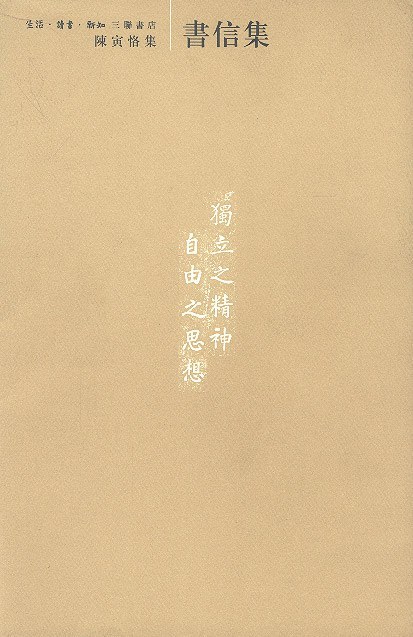 生活·讀書·新知三聯書店
陳寅恪集
書信集
獨立之精神
自由之思想